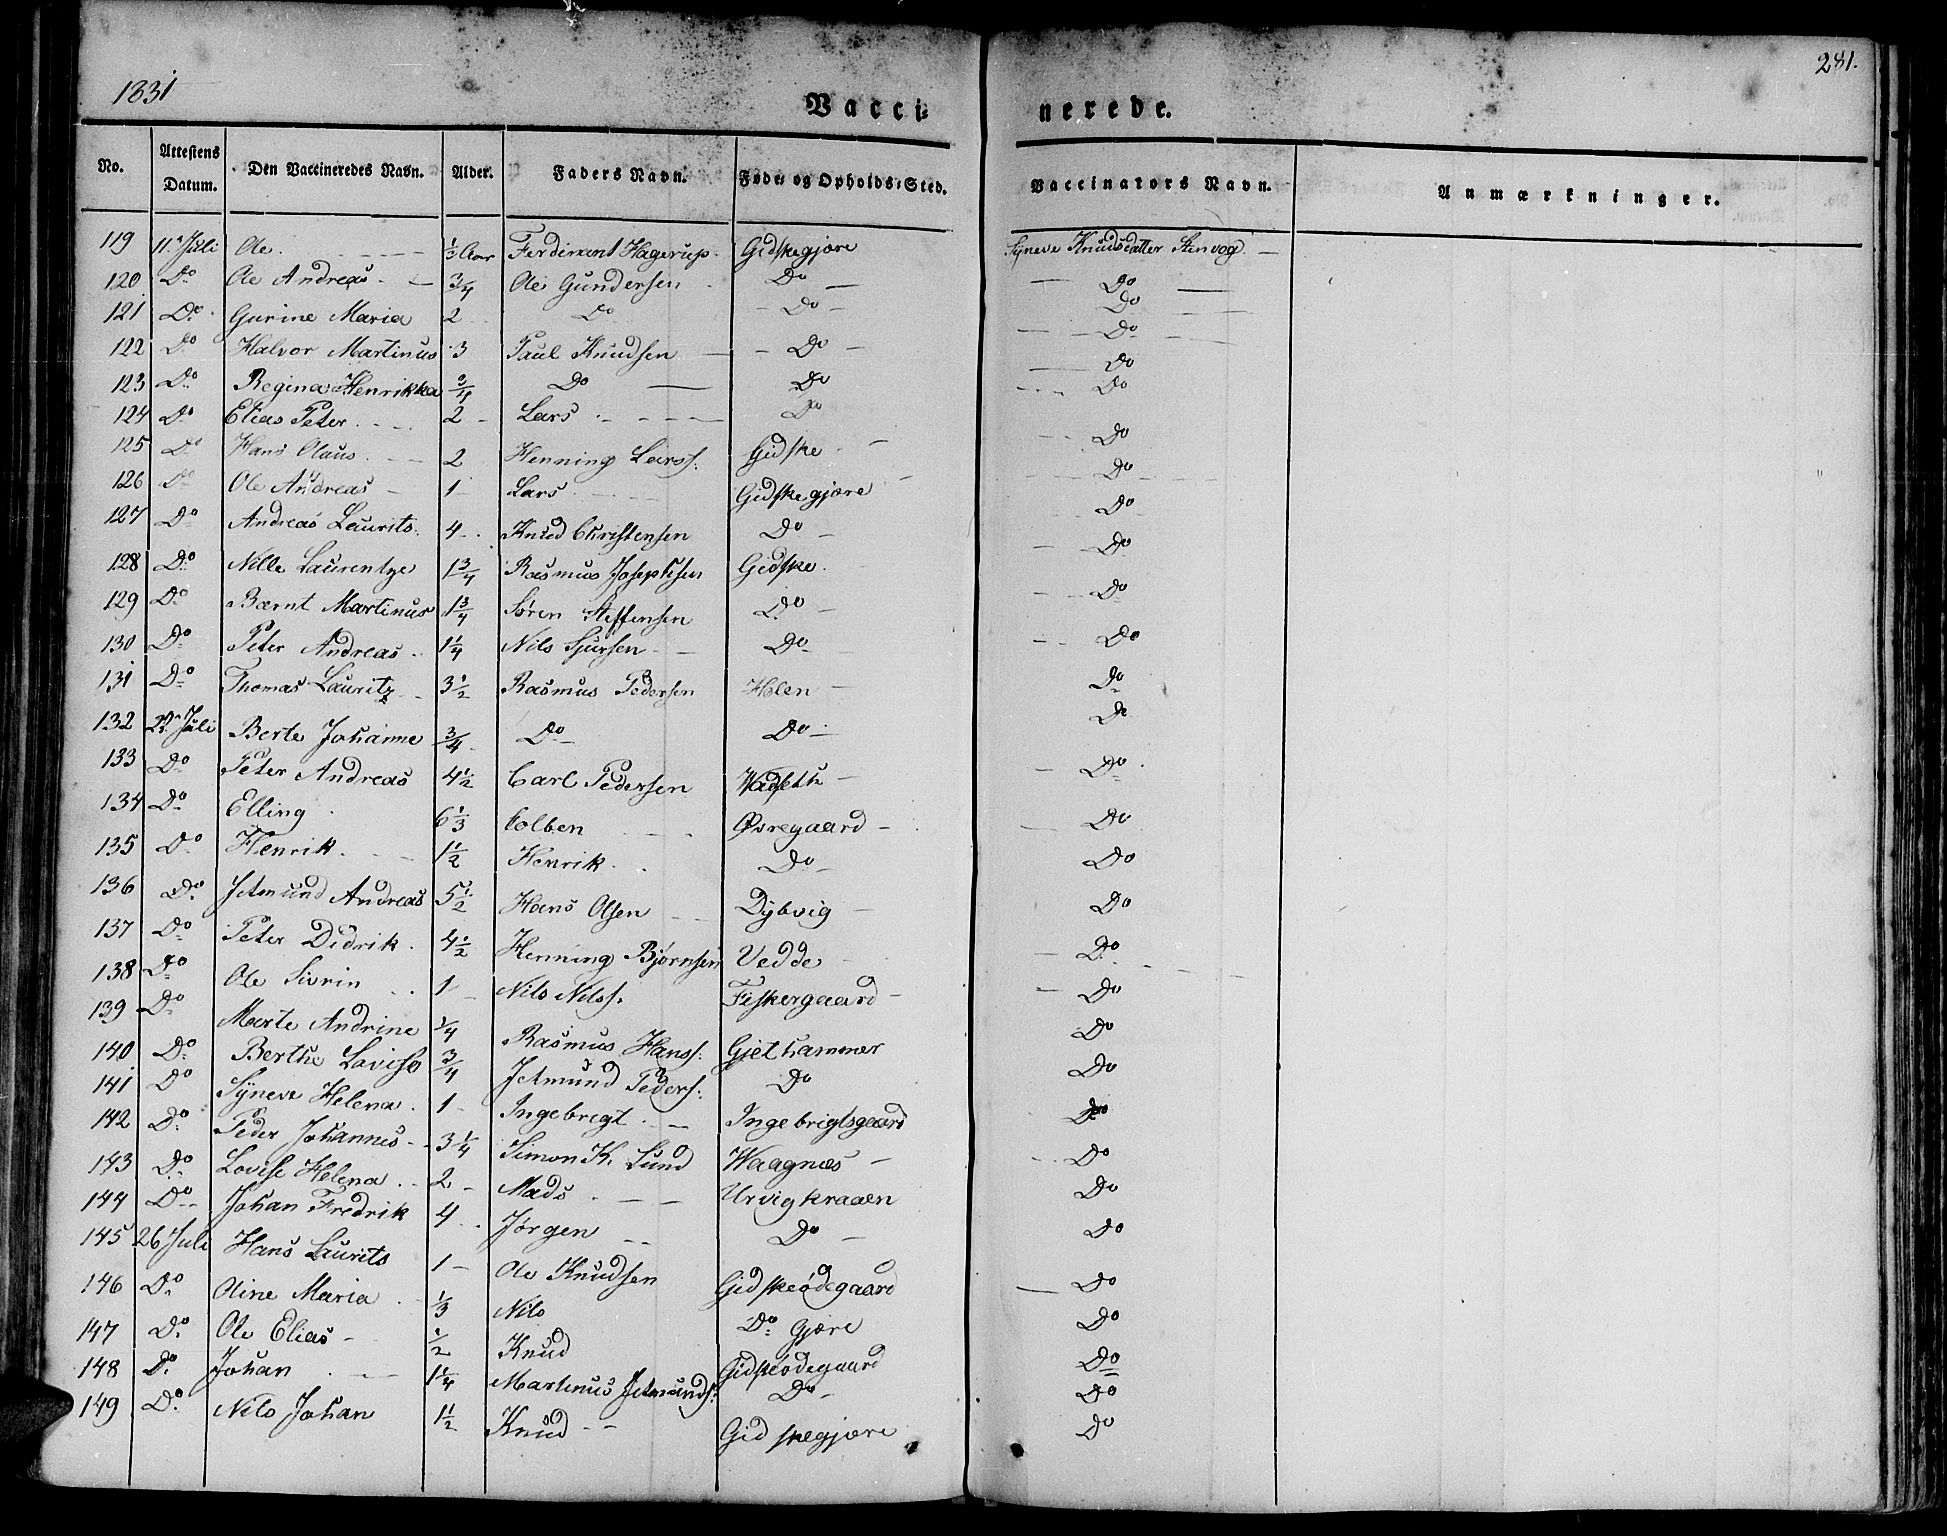 1831
281.
Vacci= nerede.
No. Attestens Datum. Den Vaccineredes Navn. Alder. Faders Navn. Føde= og Opholds=Sted. Vaccinators Navn. Anmærkninger.
119 11 Juli Ole ½ Aar Ferdinant Hagerup Gidskegjære Syneve Knudsdatter Stenvog
120 Do Ole Andreas 3/4 Ole Gundersen Do Do
121 Do Gurine Maria 2 Do Do Do
122 Do Halvor Martinus 3 Paul Knudsen Do Do
123 Do Regina Henrikka 3/4 Do Do Do
124 Do Elias Peter 2 Lars Do Do
125 Do Hans Olaus 2 Henning Larss. Gidske Do
126 Do Ole Andreas 1 Lars Gidskegjære Do
127 Do Andreas Laurits 4 Knud Christensen Do Do
128 Do Nille Laurentze 1 3/4 Rasmus Josephsen Gidske Do
129 Do Bærnt Martinus 1 3/4 Søren Steffensen Do Do
130 Do Peter Andreas 1 1/4 Nils Sjursen Do Do
131 Do Thomas Lauritz 3 1/2 Rasmus Pedersen Hlen Do
132 22 Juli Berte Johanne 3/4 Do Do Do
133 Do Peter Andreas 4 1/2 Carl Pedersen Wadseth Do
134 Do Elling 6 1/3 Colben Øvregaard Do
135 Do Henrik 1 1/2 Henrik Do Do
136 Do Jetmund Andreas 5 1/2 Hans Olsen Dybvig Do
137 Do Peter Didrik 4 1/2 Henning Bjørnsen Vedde Do
138 Do Ole Sivrin 1 Nils Nilss. Fiskergaard Do
139 Do Marte Andrine 1/4 Rasmus Hanss. Gjethammer Do
140 Do Berthe Lovise 3/4 Jetmund Peders. Do Do
141 Do Syneve Helena 1 Ingebregt Ingebrigtsgaard Do
142 Do Peder Johannes 3 1/4 Simon K. Sund Waagnæs Do
143 Do Lovise Helena 2 Mads Urvigkraaen Do
144 Do Johan Fredrik 4 Jørgen Do Do
145 26 Juli Hans Laurits 1 Ole Knudsen Gidskeødegaard Do
146 Do Oline Maria 1/3 Nils Do Gjære Do
147 Do Ole Elias 1/2 Knud Gidskeødegaard Do
148 Do Johan 1 1/4 Martinus Jetmunds. Do Do
149 Do Nils Johan 1 1/2 Knud Gidskegjære Do